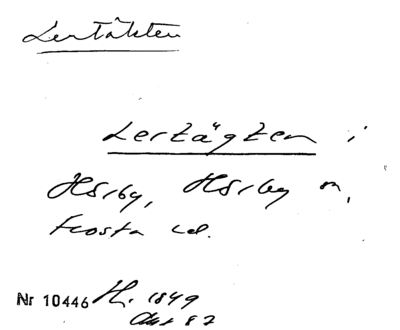 Lertäkten
Lertägten i
Hörby, Hörby sn,
Frosta hd.
Nr 10446 H. 1849
Akt 87